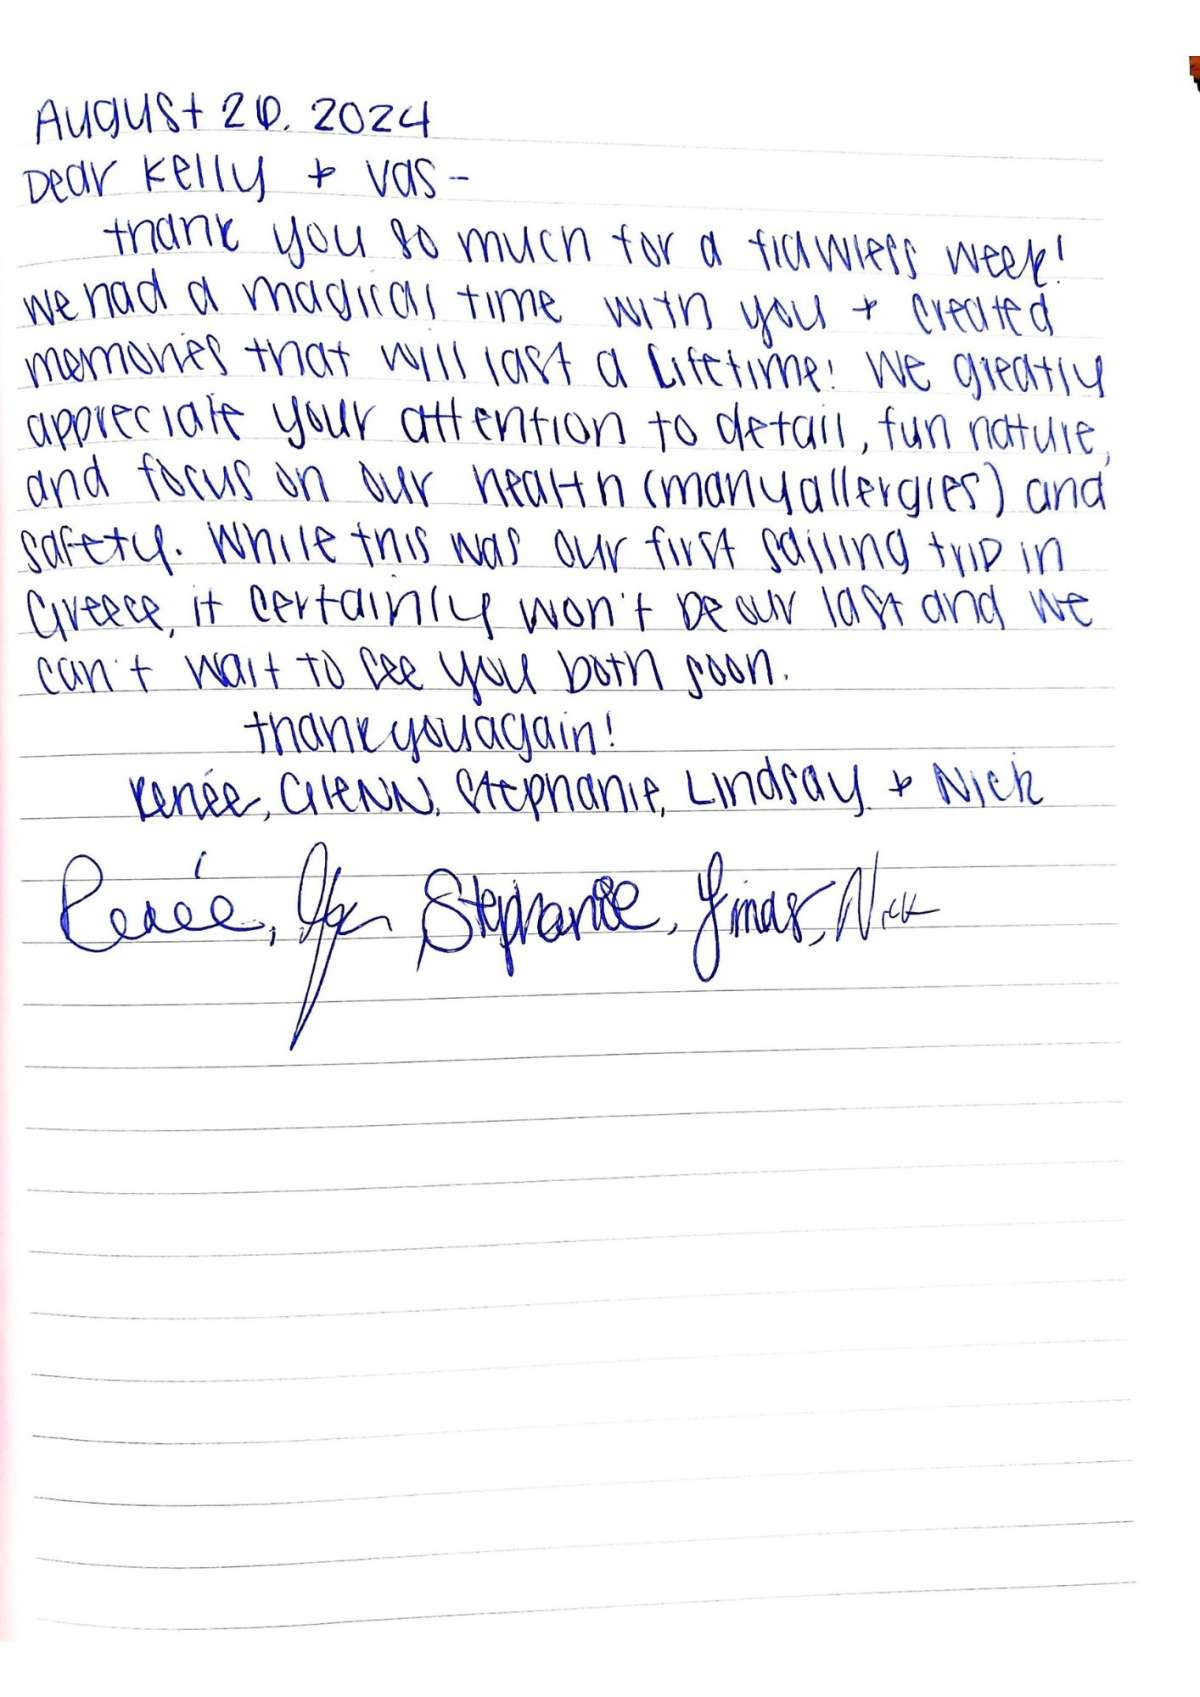 August 26, 2024
Dear Kelly + Vas -
thank you so much for a flawless week!
we had a magical time with you + created
memories that will last a lifetime! We greatly
appreciate your attention to detail, fun nature,
and focus on our health (many allergies) and
safety. While this was our first sailing trip in
Greece, it certainly won't be our last and we
can't wait to see you both soon.
thank you again!
Renée, Glenn, Stephanie, Lindsay + Nick
Renée, Stephanie, Nick